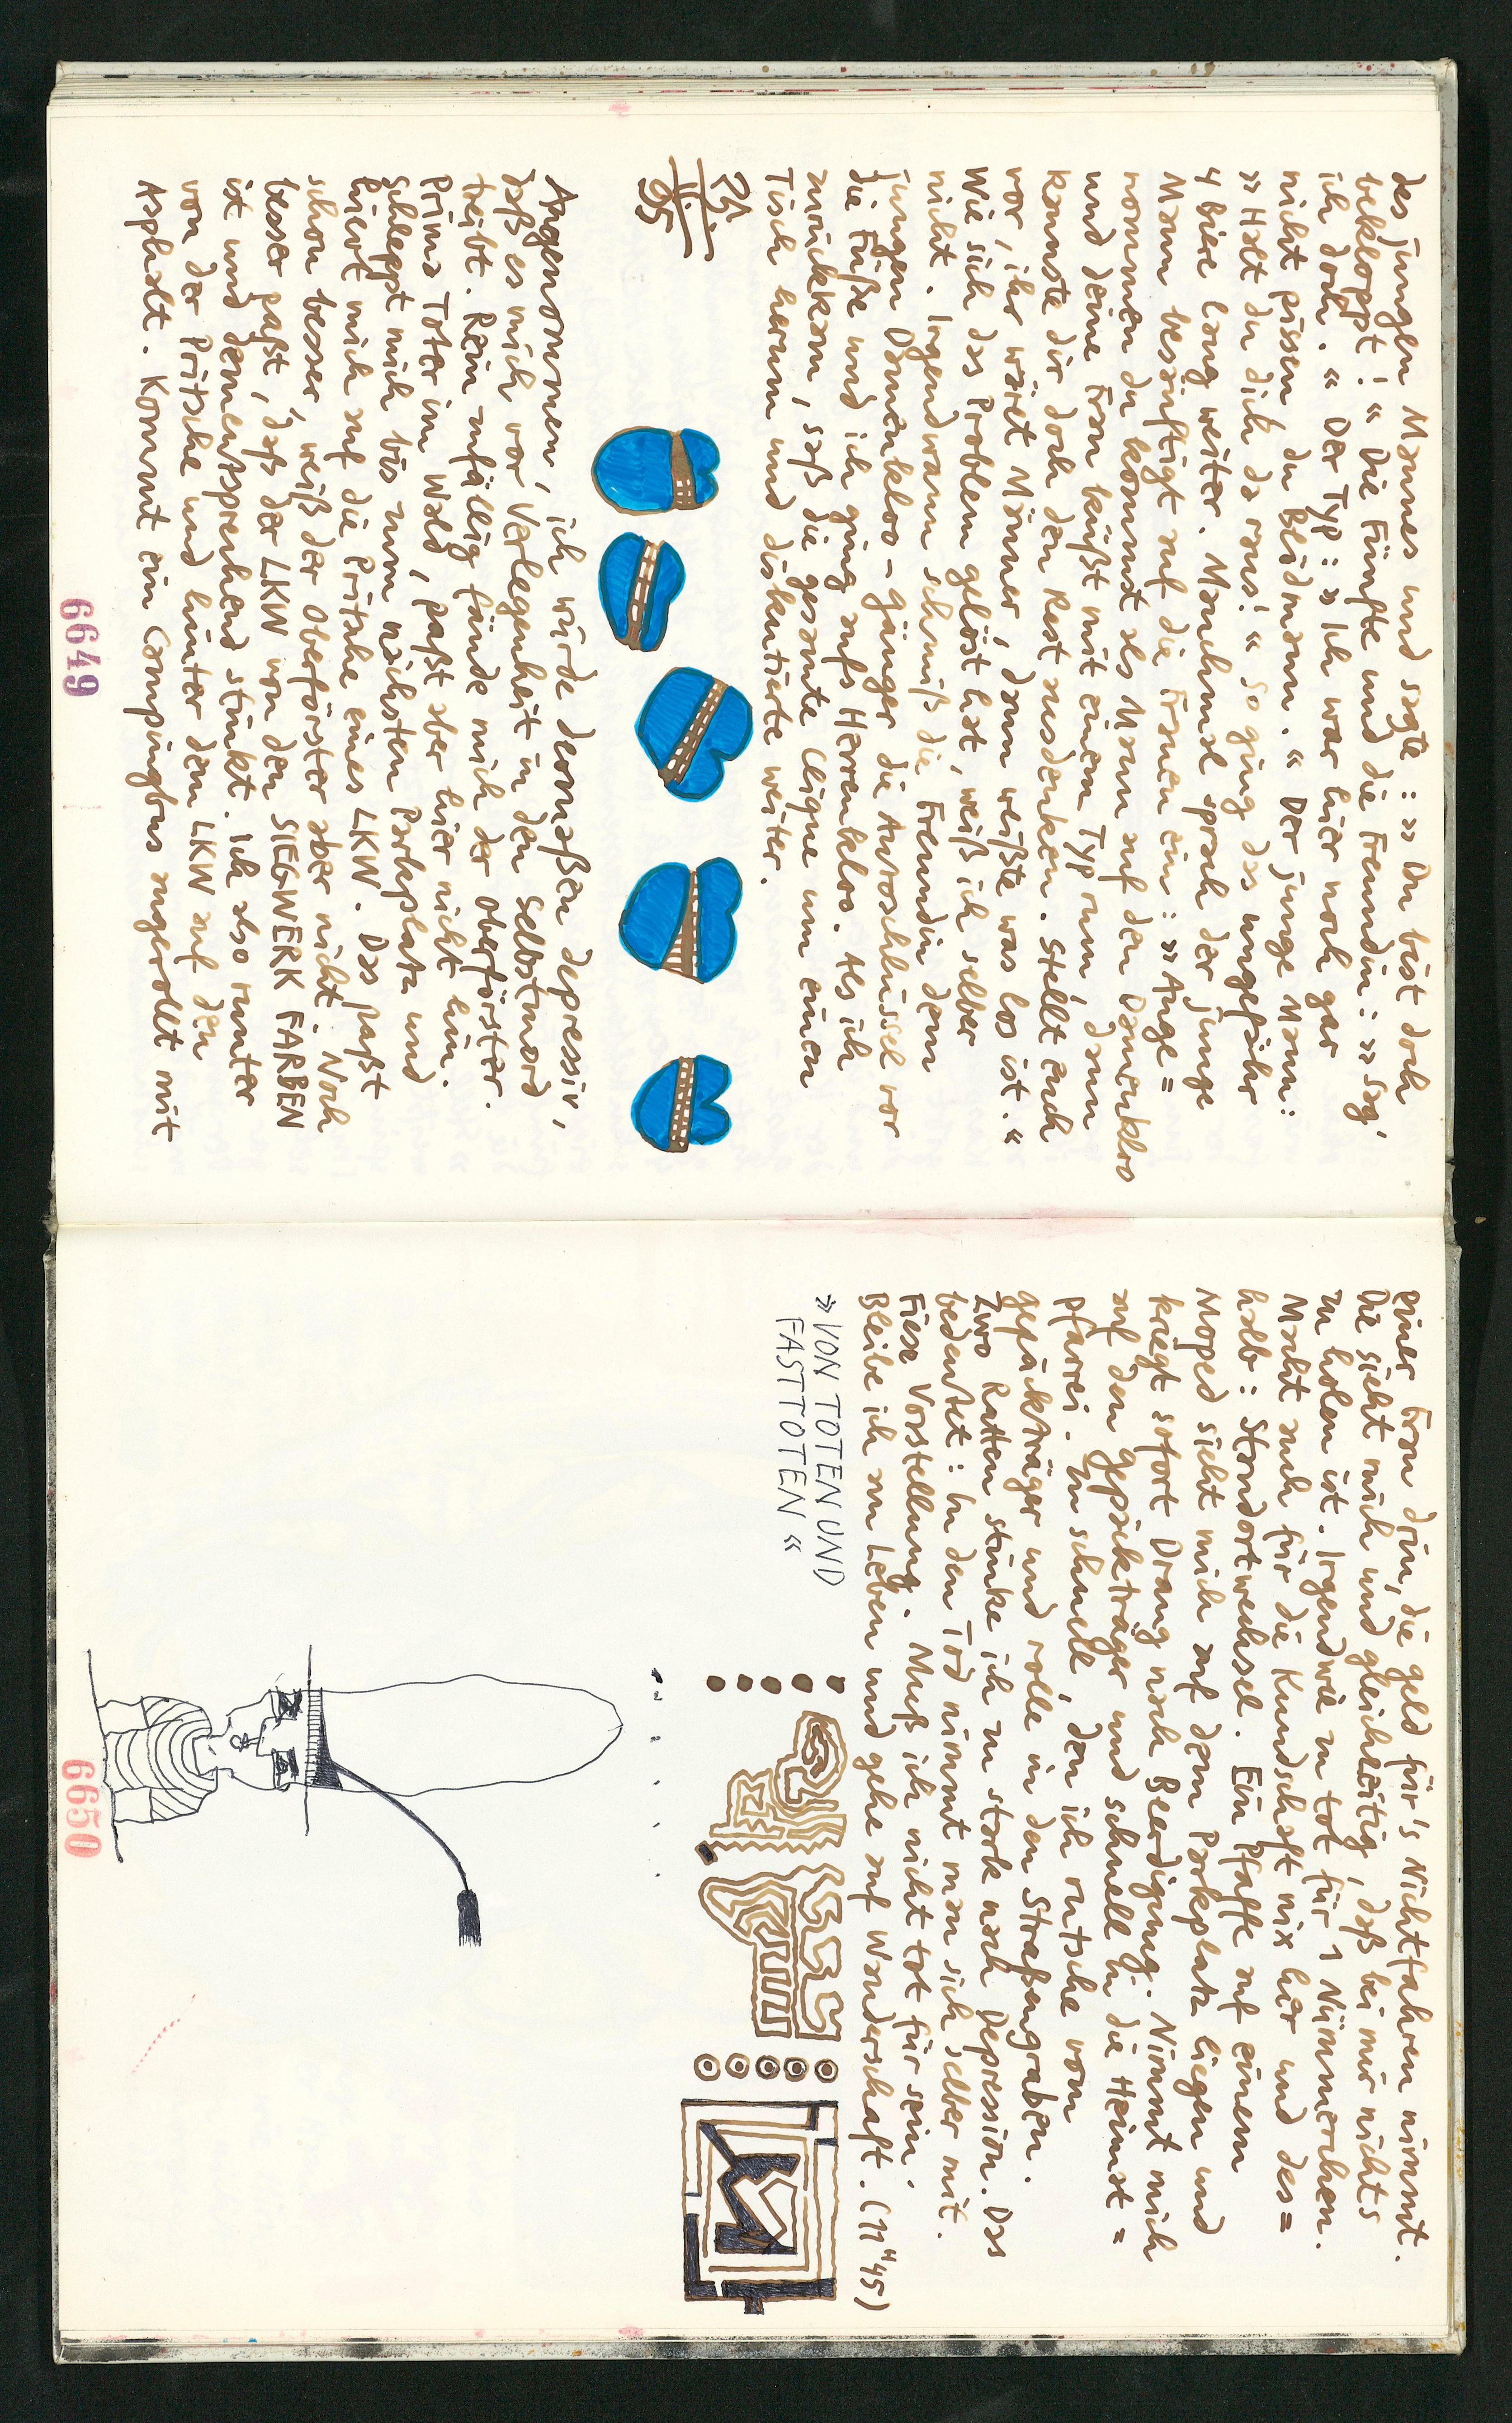 des jungen Mannes und sagte: »Du bist doch
bekloppt!« Die Fünfte und die Freundin: »Sag'
ich doch.« Der Typ: »Ich war hier noch gar
nicht pissen, du Blödmann.« Der junge Mann:
»Halt du dich da raus!« So ging das ungefähr
4 Biere lang weiter. Manchmal sprach der junge
Mann besänftigt auf die Frauen ein: »Ange=
nommen du kommst als Mann auf den Damenkloo
und deine Frau küßt mit einem Typ rum, dann
kannste dir doch den Rest ausdenken. Stellt euch
vor, ihr wäret Männer, dann weißte was los ist.«
Wie sich das Problem gelöst hat, weiß ich selber
nicht. Irgendwann schmiß die Freundin dem
jungen Damenkloo-gänger die Autoschlüssel vor
die Füße und ich ging aufs Herrenkloo. Als ich
zurückkam, saß die gesamte Clique um einen
Tisch herum und diskutierte weiter.
24
11
95
Angenommen, ich würde dermaßen depressiv,
daß es mich vor Verlegenheit in den Selbstmord
treibt. Rein zufällig fände mich der Oberförster.
Prima Toter im Wald, paßt aber hier nicht hin.
Schleppt mich bis zum nächsten Parkplatz und
hievt mich auf die Pritsche eines LKW. Das paßt
schon besser, weiß der Oberförster aber nicht. Noch
besser paßt, daß der LKW von den SIEGWERK FARBEN
ist und dementsprechend stinkt. Ich also runter
von der Pritsche und hinter dem LKW auf den
Asphalt. Kommt ein Campingbus angerollt mit
6649
einer Frau drin, die Geld für's Nichtfahren nimmt.
Die sieht mich und gleichzeitig, daß bei mir nichts
zu holen ist. Irgendwie zu tot für 1 Nümmerchen.
Macht auch für die Kundschaft nix her und des=
halb: Standortwechsel. Ein Pfaffe auf einem
Moped sieht mich auf dem Parkplatz liegen und
kriegt sofort Drang nach Beerdigung. Nimmt mich
auf den Gepäckträger und schnell in die Heimat=
pfarrei. Zu schnell, den ich rutsche vom
Gepäckträger und rolle in den Straßengraben.
Zwo Ratten stinke ich zu stark nach Depression. Das
bedeutet: In den Tod nimmt man sich selber mit.
Fiese Vorstellung. Muß ich nicht tot für sein.
Bleibe ich am Leben und gehe auf Wanderschaft. (11"45)
»VON TOTEN UND
FAST TOTEN«
6650